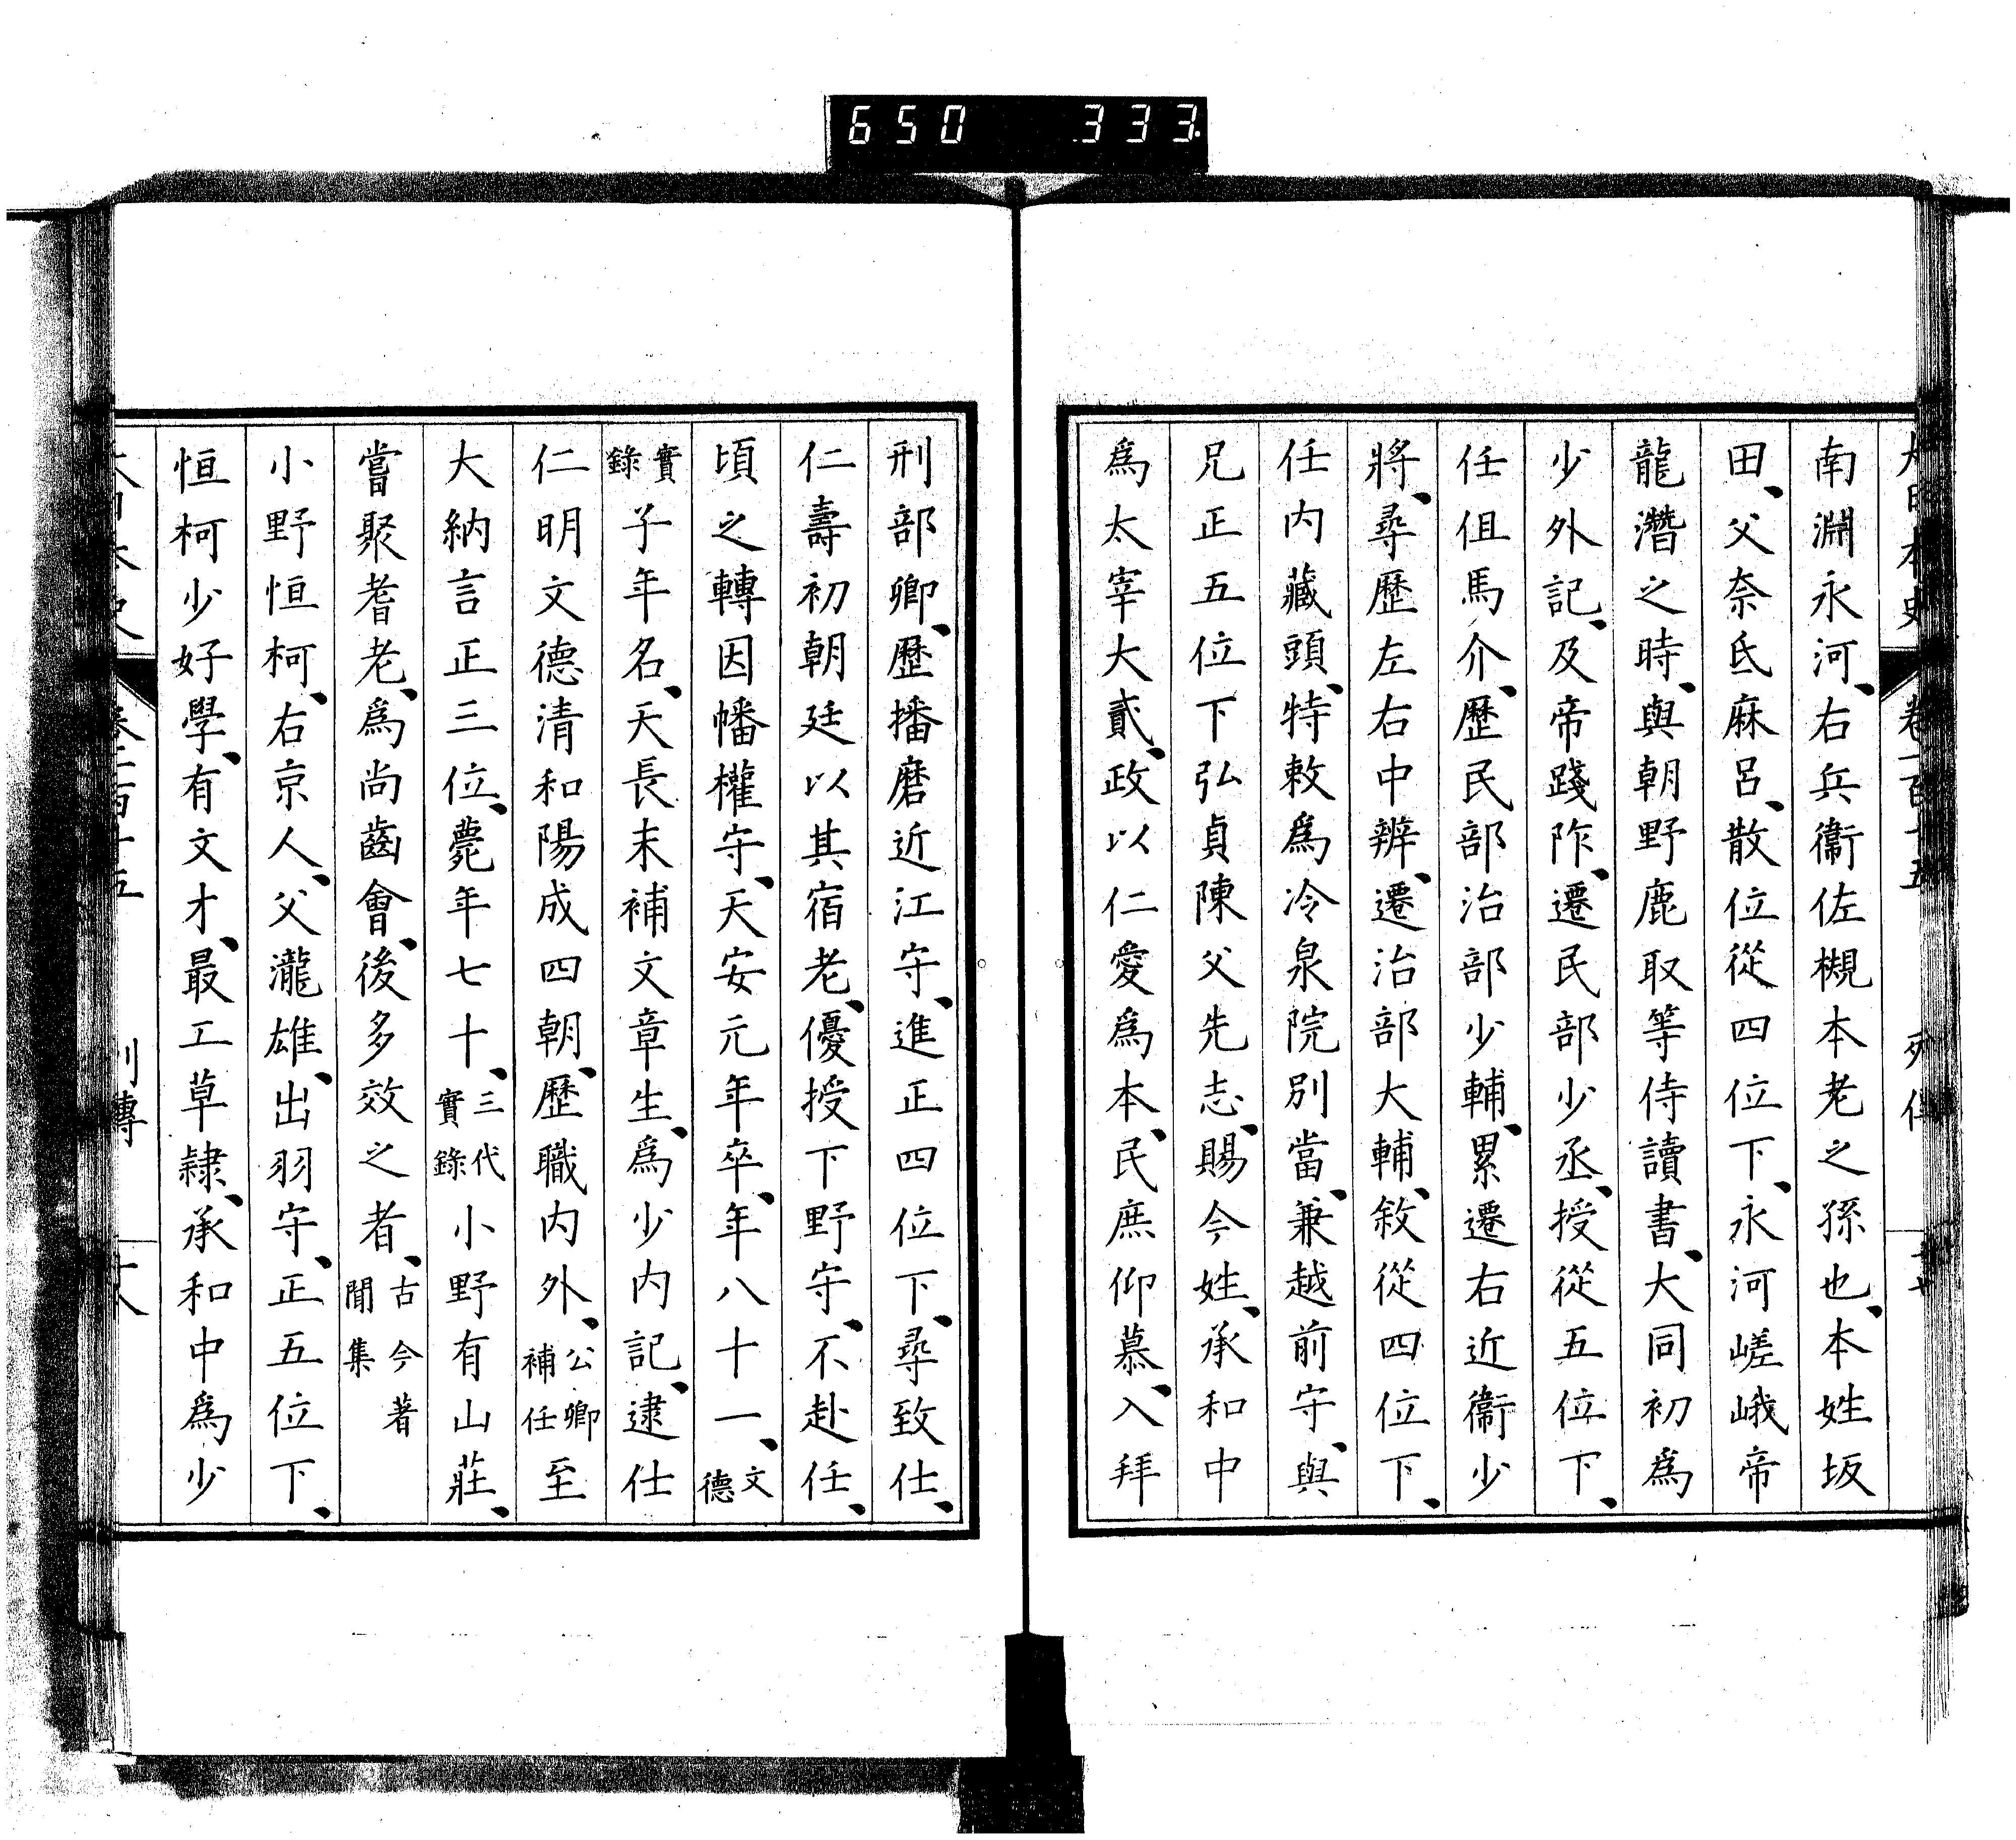 650 333
大日本史 卷一百十五 列傳
南淵永河、右兵衞佐槻本老之孫也、本姓坂
田、父奈氐麻呂、散位從四位下、永河嵯峨帝
龍潛之時、與朝野鹿取等侍讀書、大同初爲
少外記、及帝踐阼、遷民部少丞、授從五位下、
任但馬介、歷民部治部少輔、累遷右近衞少
將、尋歷左右中辨、遷治部大輔、敘從四位下、
任内藏頭、特敕爲冷泉院別當、兼越前守、與
兄正五位下弘貞陳父先志、賜今姓、承和中
爲太宰大貳、政以仁愛爲本、民庶仰慕、入拜
刑部卿、歷播磨近江守、進正四位下、尋致仕、
仁壽初朝廷以其宿老、優授下野守、不赴任、
頃之轉因幡權守、天安元年卒、年八十一、文德
實錄子年名、天長末補文章生、爲少内記、逮仕
仁明文德清和陽成四朝、歷職内外、公卿補任至
大納言正三位、薨年七十、三代實錄小野有山莊、
嘗聚耆老、爲尚齒會、後多效之者、古今著聞集
小野恒柯、右京人、父瀧雄、出羽守、正五位下、
恒柯少好學、有文才、最工草隷、承和中爲少
大日本史 卷一百十五 列傳